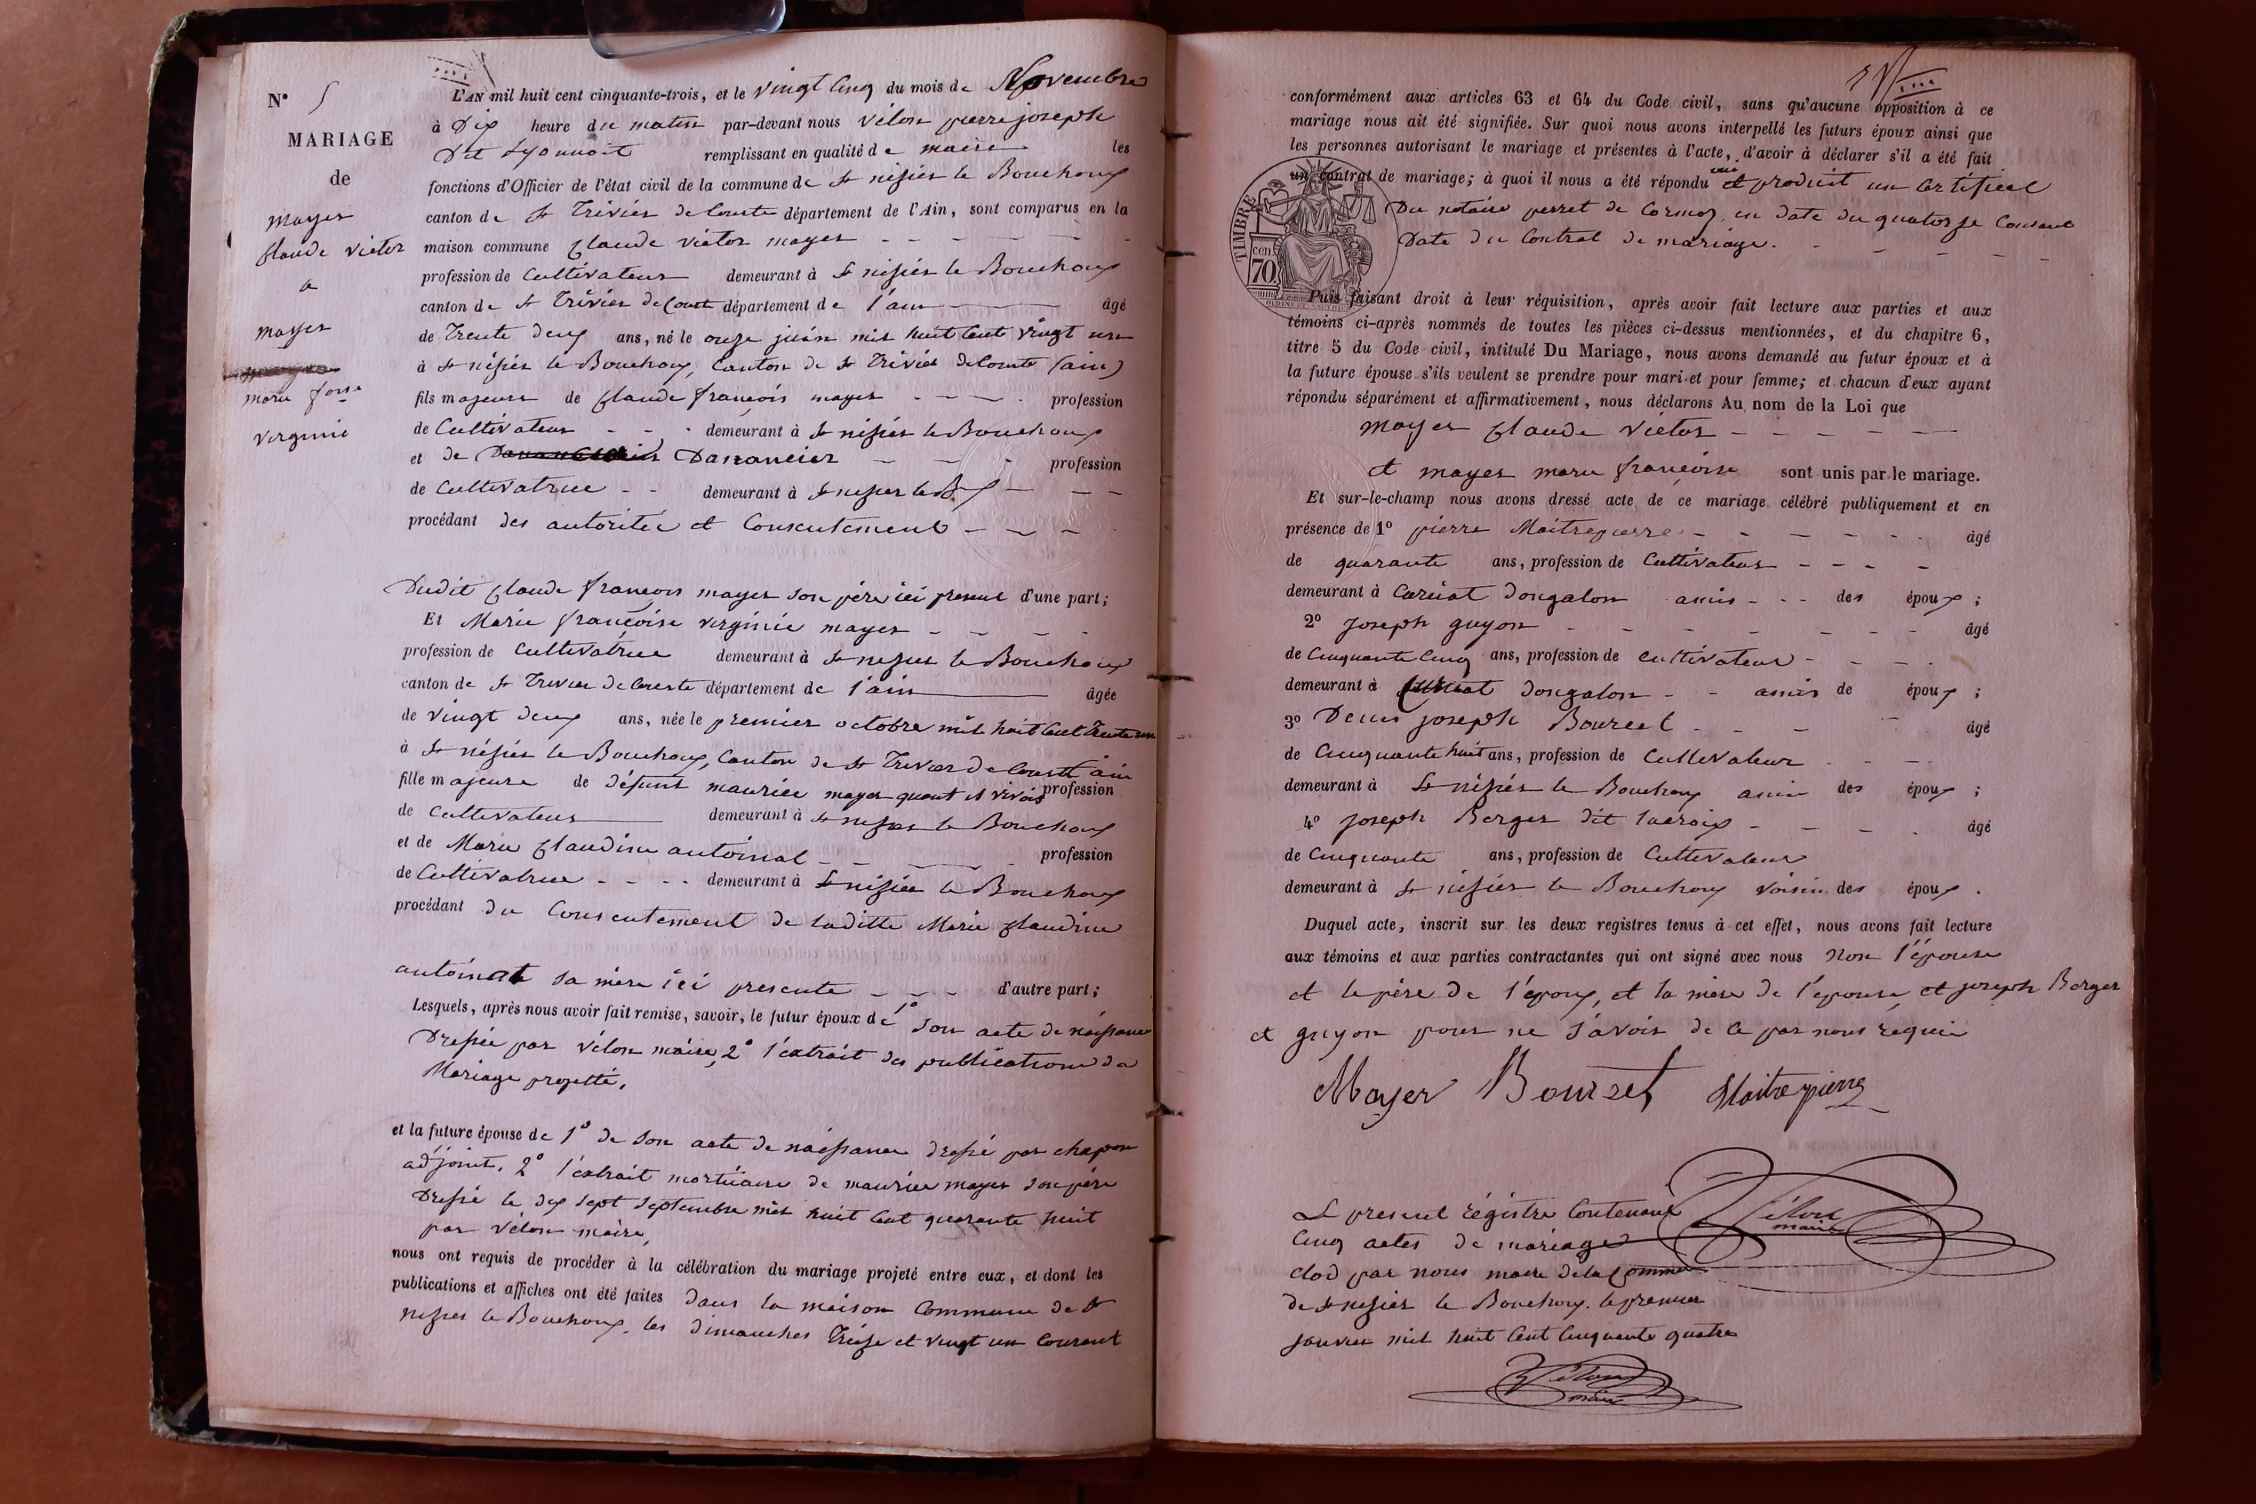 N° 5
MARIAGE
de
mayer
Claude victor
a
mayer
marie foise
virginie
L'AN mil huit cent cinquante-trois, et le vingt cinq du mois de Novembre
à Dix heure du matin par-devant nous vélon pierre joseph
Dit Lyonnait remplissant en qualité de maire les
fonctions d'Officier de l'état civil de la commune de St nisier le Bouchoux
canton de St Trivier de Courte département de l'Ain, sont comparus en la
maison commune Claude victor mayer
profession de Cultivateur demeurant à St nisier le Bouchoux
canton de St Trivier de Court département de l'ain âgé
de Trente deux ans, né le onze juin mil huit Cent vingt un
à St nisier le Bouchoux, Canton de St Trivier de Courte (ain)
fils majeur de Claude françois mayer profession
de Cultivateur demeurant à St nisier le Bouchoux
et de Dananciér profession
de Cultivatrice demeurant à St nisier le Bx
procédant des autorité et Consentement
Dudit Claude françois mayer son père ici present d'une part;
Et Marie françoise virginie mayer
profession de Cultivatrice demeurant à St nisier le Bouchoux
canton de St Trivier de Courte département de l'ain âgée
de vingt deux ans, née le premier octobre mil huit Cent Trente un
à St nisier le Bouchoux, Canton de St Trivier de Courte ain
fille majeure de défunt maurice mayer quant il vivois profession
de Cultivateur demeurant à St nisier le Bouchoux
et de Marie Claudine antoinat profession
de Cultivatrice demeurant à St nisier le Bouchoux
procédant du Consentement de laditte Marie Claudine
antoinat sa mère ici presente d'autre part;
Lesquels, après nous avoir fait remise, savoir, le futur époux de 1° son acte de naissance
Dressée par vélon maire, 2° l'extrait des publications du
Mariage projetté,
et la future épouse de 1° de son acte de naissance dressé par chapon
adjoint, 2° l'extrait mortuaire de maurice mayer son père
Dressé le dix sept septembre mil huit Cent quarante huit
par vélon maire,
nous ont requis de procéder à la célébration du mariage projeté entre eux, et dont les
publications et affiches ont été faites dans la maison Commune de St
nisier le Bouchoux, les dimanches Treize et vingt un Courant
conformément aux articles 63 et 64 du Code civil, sans qu'aucune opposition à ce
mariage nous ait été signifiée. Sur quoi nous avons interpellé les futurs époux ainsi que
les personnes autorisant le mariage et présentes à l'acte, d'avoir à déclarer s'il a été fait
un contrat de mariage; à quoi il nous a été répondu oui et produit un Certificat
Du notaire perret de Cormoz, en date du quatorze Courant
Date du Contrat de mariage.
TIMBRE
cen
70
Puis faisant droit à leur réquisition, après avoir fait lecture aux parties et aux
témoins ci-après nommés de toutes les pièces ci-dessus mentionnées, et du chapitre 6,
titre 5 du Code civil, intitulé Du Mariage, nous avons demandé au futur époux et à
la future épouse s'ils veulent se prendre pour mari et pour femme; et chacun d'eux ayant
répondu séparément et affirmativement, nous déclarons Au nom de la Loi que
mayer Claude victor
et mayer marie françoise sont unis par le mariage.
Et sur-le-champ nous avons dressé acte de ce mariage célébré publiquement et en
présence de 1° pierre Maitrepierre âgé
de quarante ans, profession de Cultivateur
demeurant à Curciat dongalon amis des époux;
2° joseph guyon âgé
de Cinquante Cinq ans, profession de cultivateur
demeurant à Curciat dongalon amis de époux;
3° Denis joseph Bourcet âgé
de Cinquante huit ans, profession de Cultivateur
demeurant à St nisier le Bouchoux ami des époux;
4° joseph Berger dit lacroix âgé
de Cinquante ans, profession de Cultivateur
demeurant à St nisier le Bouchoux voisin des époux.
Duquel acte, inscrit sur les deux registres tenus à cet effet, nous avons fait lecture
aux témoins et aux parties contractantes qui ont signé avec nous non l'épouse
et le père de l'époux, et la mère de l'epouse et joseph Berger
et guyon pour ne s'avoir de ce par nous requi
Mayer Bourcet Maitrepierre
Vélon
maire
Le present régistre Contenant
Cinq actes de mariage
clod par nous maire de la Commune
de St nisier le Bouchoux. le premier
janvier mil huit Cent Cinquante quatre
Vélon
maire